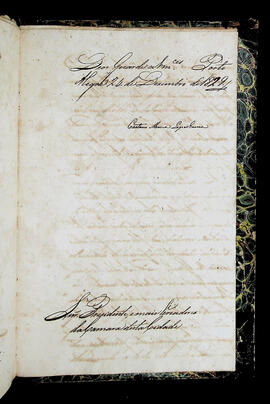 Deos Guarde a V.mces Porto
Alegre 24 de Dezembro de 1829
Caetano Maria Lopes Gama
Snr. Presidente, e mais Vereadores
da Camara desta Cidade